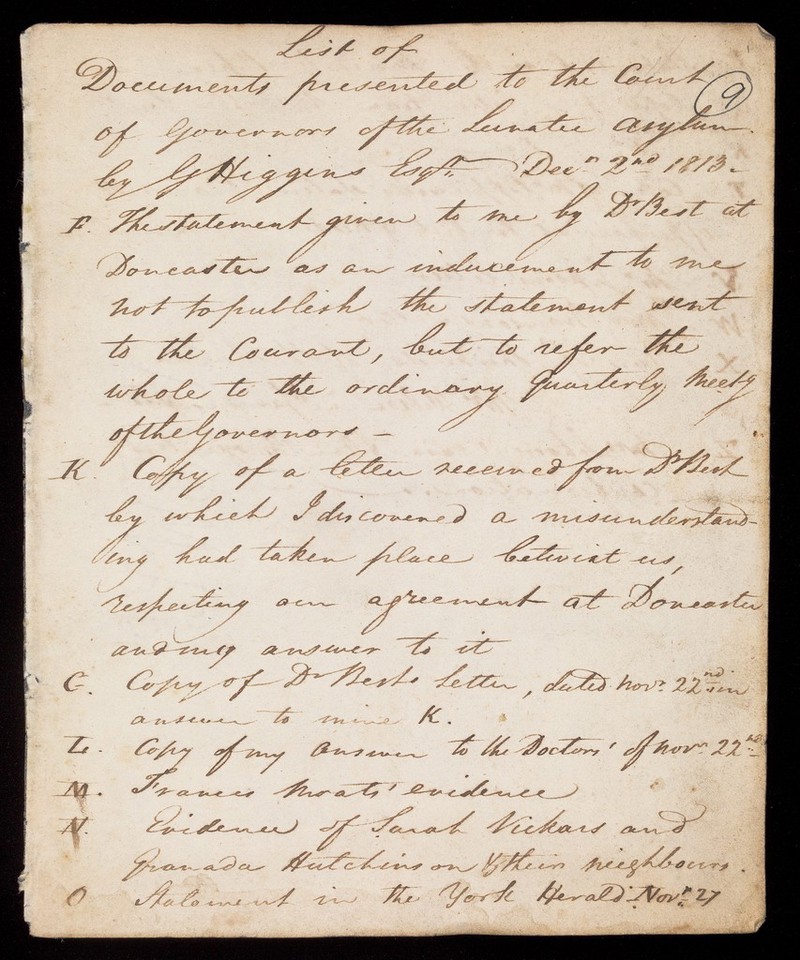 List of
Documents presented to the Court
9
of Governors of the Lunatic Asylum.
by G Higgins Esqr. Decr. 2nd 1813.
F. The statement given to me by Dr Best at
Doncaster as an inducement to me
not to publish the statement sent
to the Courant, but to refer the
whole to the ordinary Quarterly Meetg
of the Governors –
K. Copy of a letter received from Dr Best
by which I discovered a misunderstand-
ing had taken place betwixt us,
respecting our agreement at Doncaster
and my answer to it
G. Copy of Dr Bests letter, dated novr. 22nd in
answer to mine K.
L. Copy of my answer to the Doctors' of novr 22nd
M. Frances Moats' evidence
N. Evidence of Sarah Vickars and
Granada Hutchinson & their neighbours.
O Statement in the York Herald Novr. 27